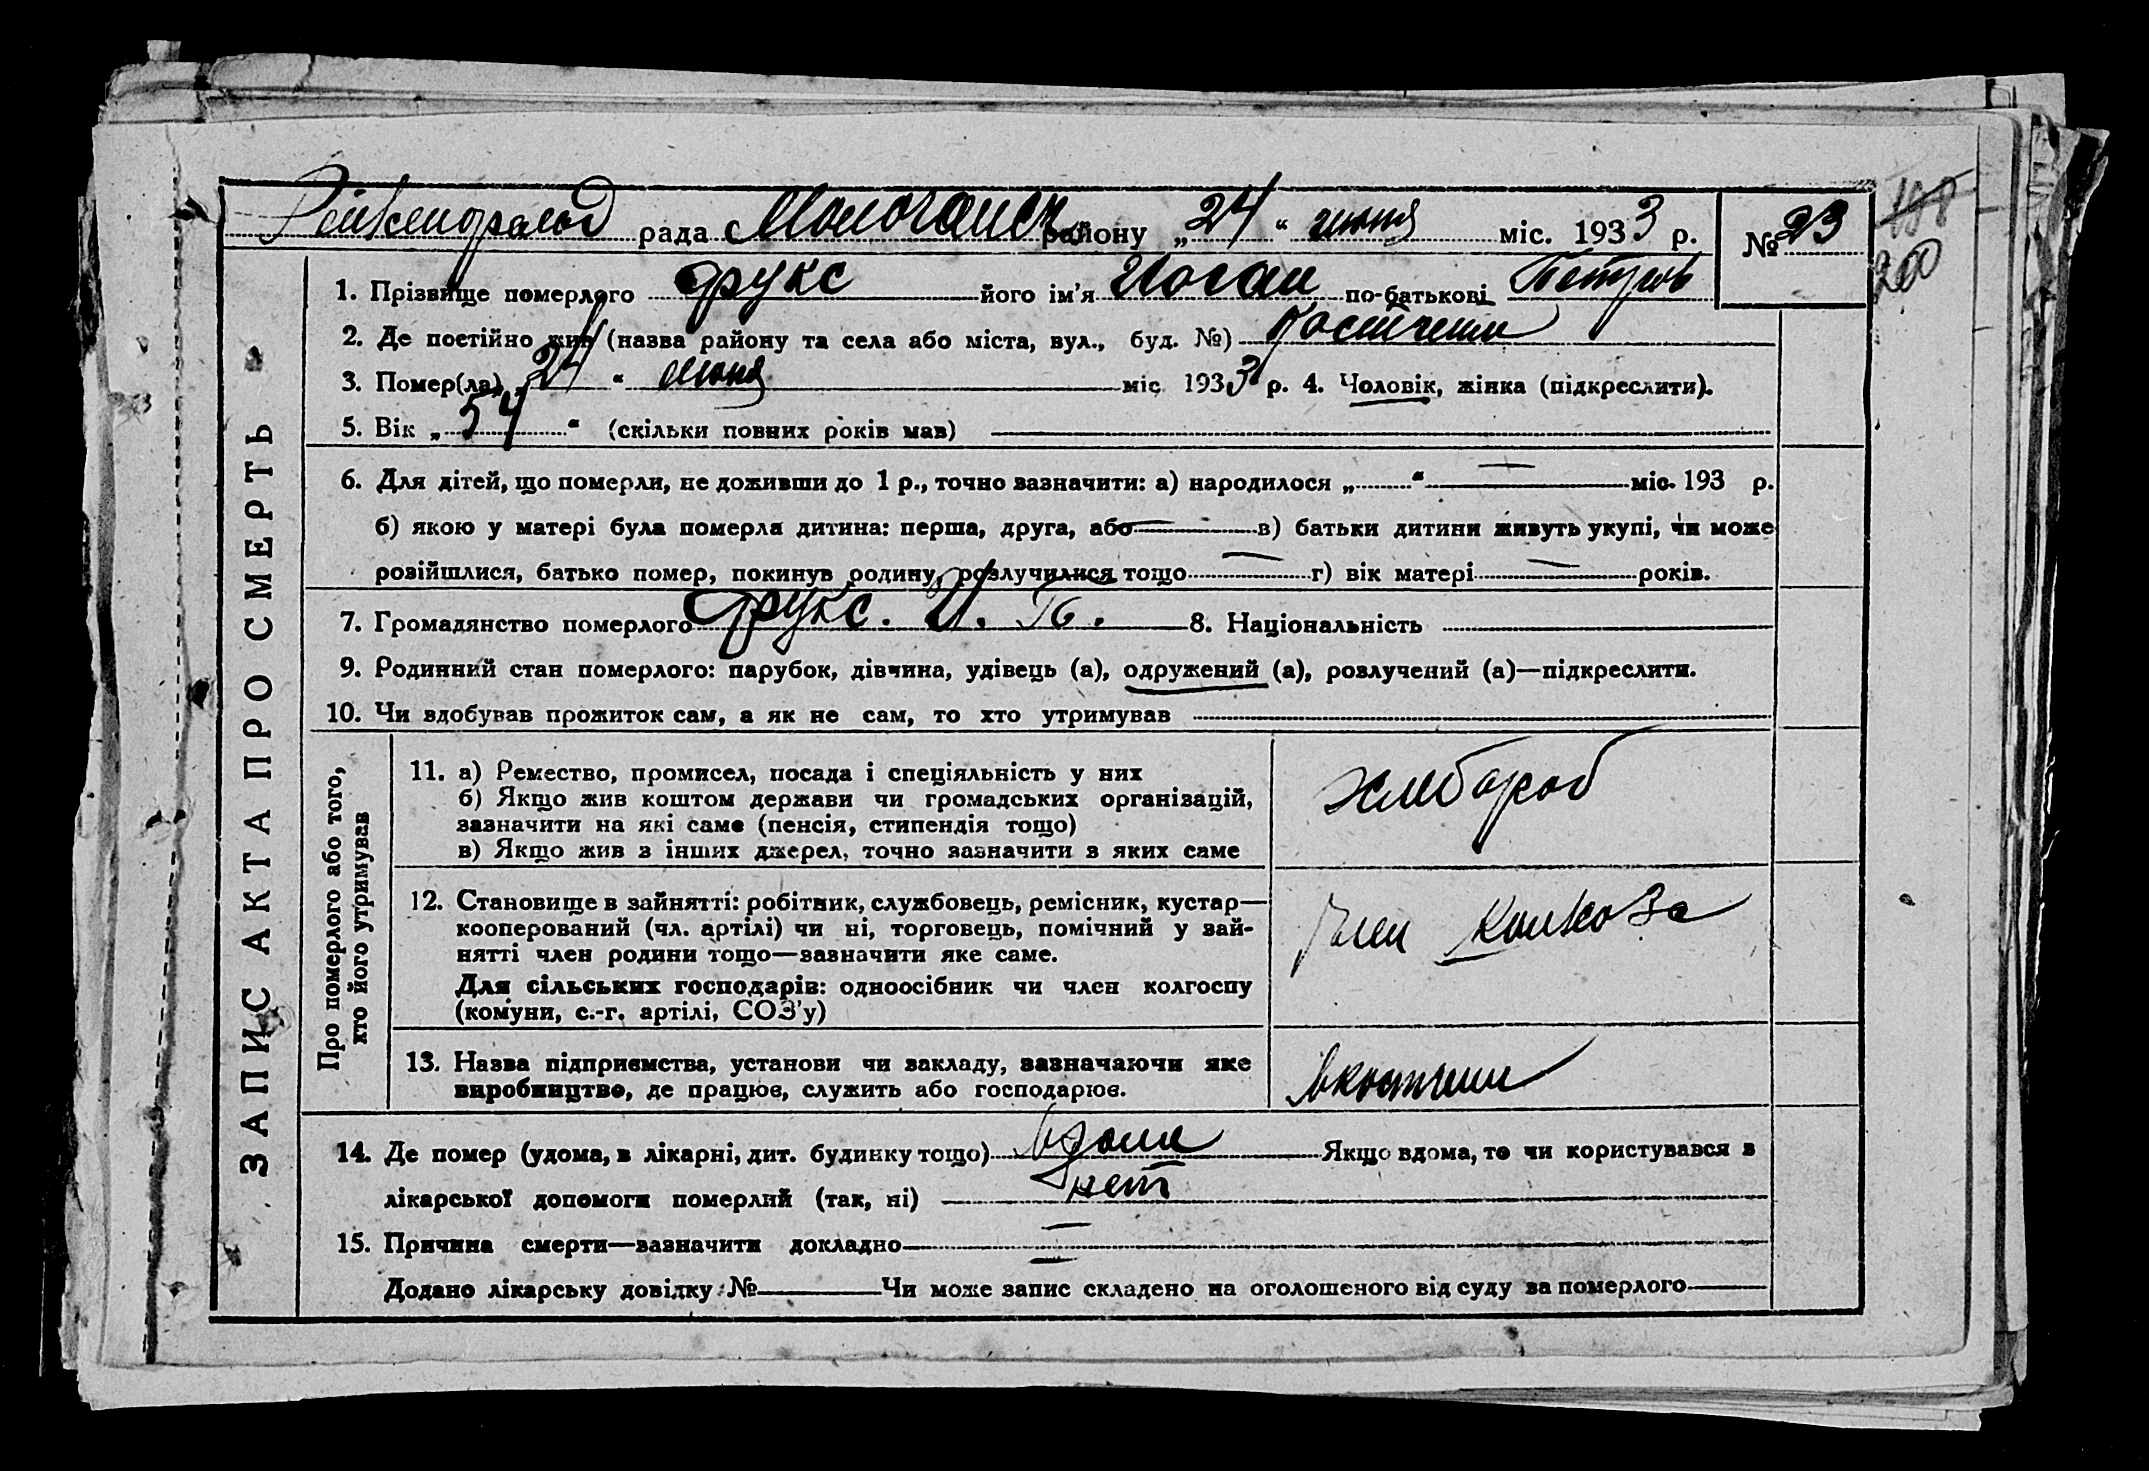 Рейхенфельд рада Молочанск району „24“ июня міс. 1933 р. № 23
198
200
ЗАПИС АКТА ПРО СМЕРТЬ
1. Прізвище померлого Фукс його ім'я Иоган по-батькові Петров
2. Де постійно жив (назва району та села або міста, вул., буд. №)
3. Помер(ла) „24“ июня міс. 1933 р. 4. Чоловік, жінка (підкреслити).
5. Вік „54“ (скільки повних років мав)
6. Для дітей, що померли, не доживши до 1 р., точно зазначити: а) народилося „ “ — міс. 193 р.
б) якою у матері була померла дитина: перша, друга, або — в) батьки дитини живуть укупі, чи може
розійшлися, батько помер, покинув родину, розлучилися тощо — г) вік матері — років.
7. Громадянство померлого Фукс. И. П. 8. Національність
9. Родинний стан померлого: парубок, дівчина, удівець (а), одружений (а), розлучений (а)—підкреслити.
10. Чи здобував прожиток сам, а як не сам, то хто утримував
Про померлого або того,
хто його утримував
11. а) Ремество, промисел, посада і спеціяльність у них
б) Якщо жив коштом держави чи громадських організацій,
зазначити на які саме (пенсія, стипендія тощо)
в) Якщо жив з інших джерел, точно зазначити з яких саме
хлебороб
12. Становище в зайнятті: робітник, службовець, ремісник, кустар—
кооперований (чл. артілі) чи ні, торговець, помічний у зай-
нятті член родини тощо—зазначити яке саме.
Для сільських господарів: одноосібник чи член колгоспу
(комуни, с.-г. артілі, СОЗ'у)
член колхоза
13. Назва підприємства, установи чи закладу, зазначаючи яке
виробництво, де працює, служить або господарює.
14. Де помер (удома, в лікарні, дит. будинку тощо) вдоме Якщо вдома, то чи користувався з
лікарської допомоги померлий (так, ні) нет
15. Причина смерти—зазначити докладно —
Додано лікарську довідку № — Чи може запис складено на оголошеного від суду за померлого —